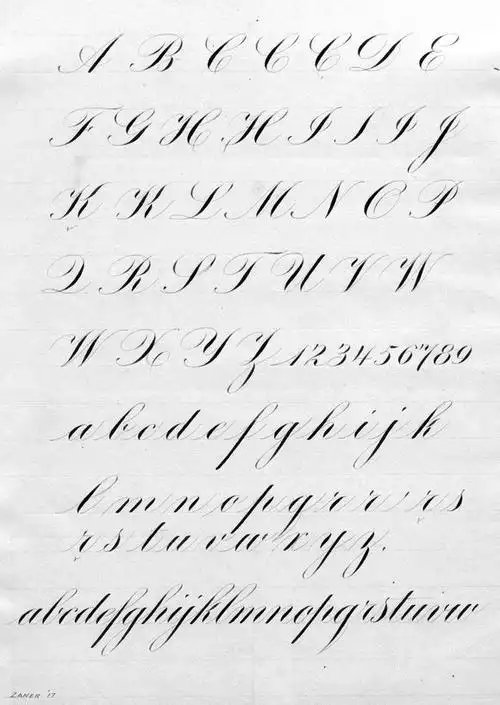 A B C C C D E
F G H H I I I J
K K L M N O P
Q R S T U V W
W X Y Z 1234567 89
a b c d e f g h i j k
l m n o p q r r r s
r s t u v w x y z.
abcdefghijklmnopqrstuvw
ZANER '17